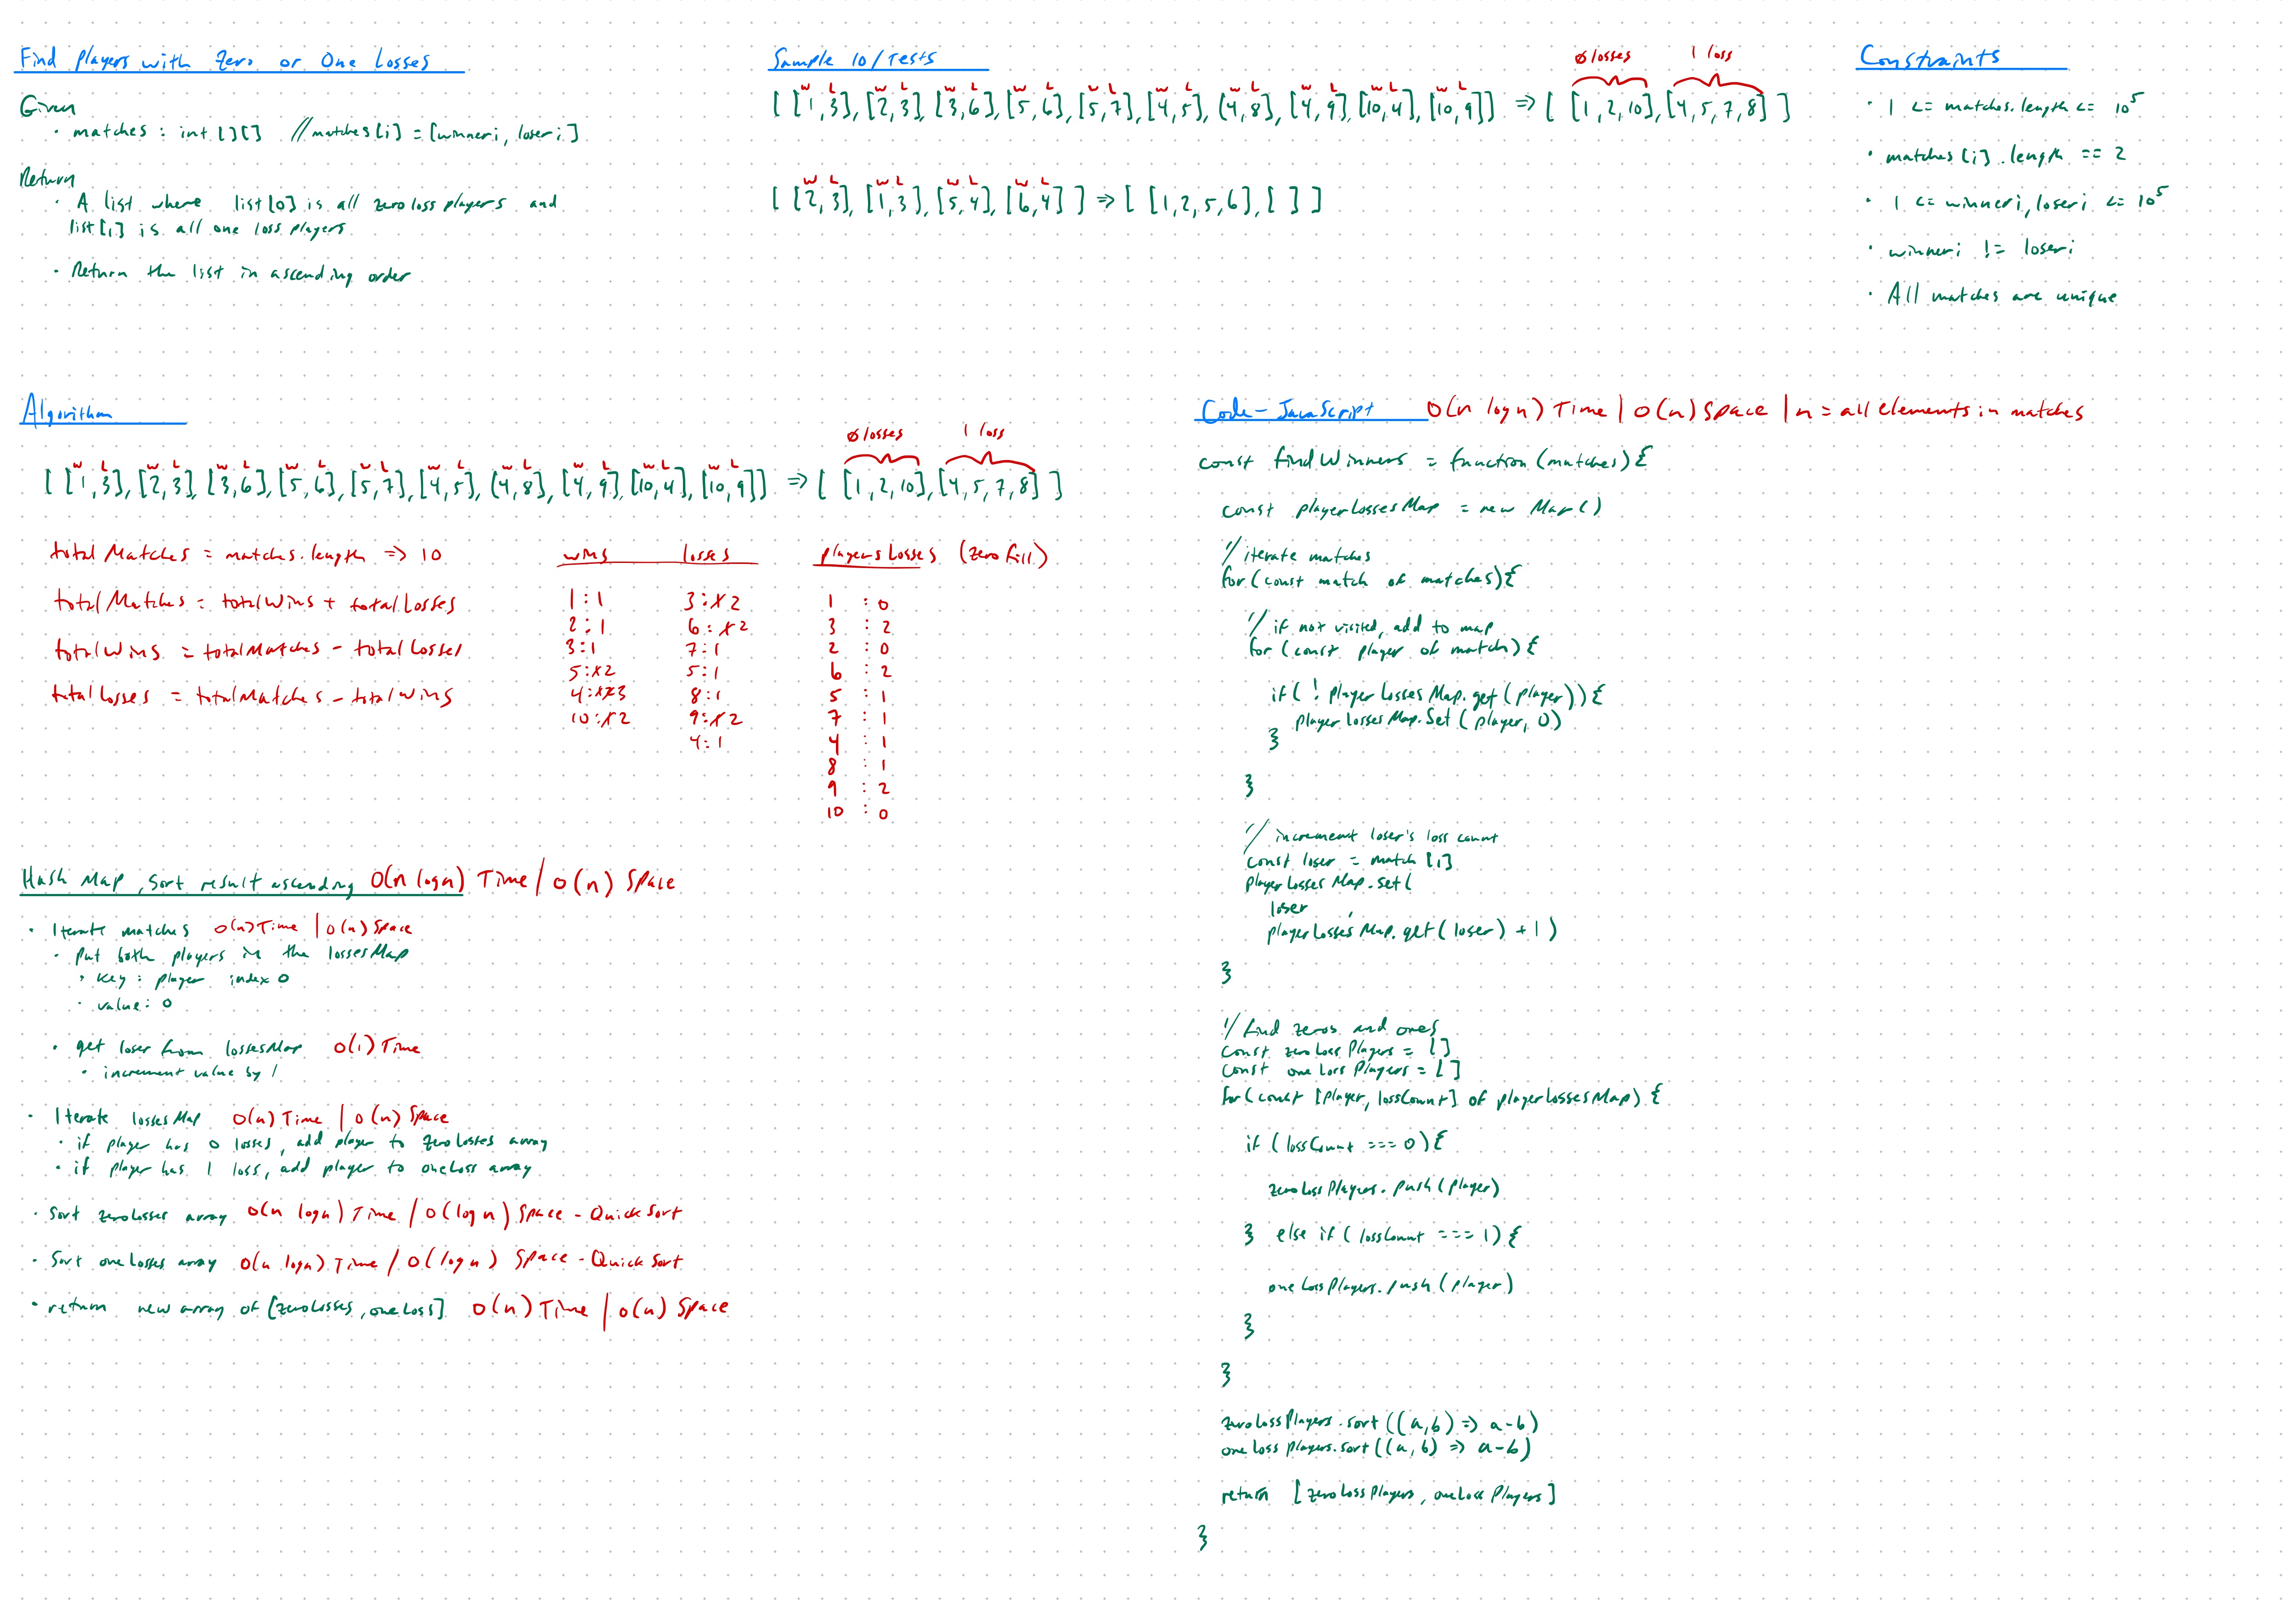 Find Players with Zero or One Losses
Given
· matches : int [][] // matches[i] = [winneri, loseri]
Return
· A list where list[0] is all zero loss players and
list[1] is all one loss players
· Return the list in ascending order
Sample IO/Tests
ø losses 1 loss
W L W L W L W L W L W L W L W L W L W L
[ [1,3], [2,3], [3,6], [5,6], [5,7], [4,5], [4,8], [4,9], [10,4], [10,9]] => [ [1,2,10], [4,5,7,8] ]
W L W L W L W L
[ [2,3], [1,3], [5,4], [6,4] ] => [ [1,2,5,6], [ ] ]
Constraints
· 1 <= matches.length <= 10^5
· matches[i].length == 2
· 1 <= winneri, loseri <= 10^5
· winneri != loseri
· All matches are unique
Algorithm
ø losses 1 loss
W L W L W L W L W L W L W L W L W L W L
[ [1,3], [2,3], [3,6], [5,6], [5,7], [4,5], [4,8], [4,9], [10,4], [10,9]] => [ [1,2,10], [4,5,7,8] ]
total Matches = matches.length => 10
total Matches = total Wins + total Losses
total Wins = total Matches - total Losses
total Losses = total Matches - total Wins
wins losses
1:1 3:1 2
2:1 6:1 2
3:1 7:1
5:1 2 5:1
4:1 2 3 8:1
10:1 2 9:1 2
4:1
players Losses (zero fill)
1 : 0
3 : 2
2 : 0
6 : 2
5 : 1
7 : 1
4 : 1
8 : 1
9 : 2
10 : 0
Hash Map, Sort result ascending O(n logn) Time / O(n) Space
· Iterate matches O(n) Time | O(n) Space
· Put both players in the lossesMap
· key : player index 0
· value : 0
· get loser from lossesMap O(1) Time
· increment value by 1
· Iterate lossesMap O(n) Time | O(n) Space
· if player has 0 losses, add player to zeroLosses array
· if player has 1 loss, add player to oneLoss array
· Sort zeroLosses array O(n logn) Time / O(logn) Space - Quick Sort
· Sort oneLosses array O(n logn) Time / O(logn) Space - Quick Sort
· return new array of [zeroLosses, oneLoss] O(n) Time | O(n) Space
Code - JavaScript O(n logn) Time | O(n) Space | n = all elements in matches
const findWinners = function(matches){
const playerLossesMap = new Map()
// iterate matches
for(const match of matches){
// if not visited, add to map
for(const player of match){
if( ! playerLossesMap.get(player)){
playerLossesMap.set(player, 0)
}
}
// increment loser's loss count
const loser = match[1]
playerLossesMap.set(
loser ,
playerLossesMap.get(loser) + 1)
}
// find zeros and ones
const zeroLossPlayers = []
const oneLossPlayers = []
for(const [player, lossCount] of playerLossesMap) {
if (lossCount === 0){
zeroLossPlayers.push(player)
} else if (lossCount === 1){
oneLossPlayers.push(player)
}
}
zeroLossPlayers.sort((a,b) => a-b)
oneLossPlayers.sort((a,b) => a-b)
return [zeroLossPlayers, oneLossPlayers]
}